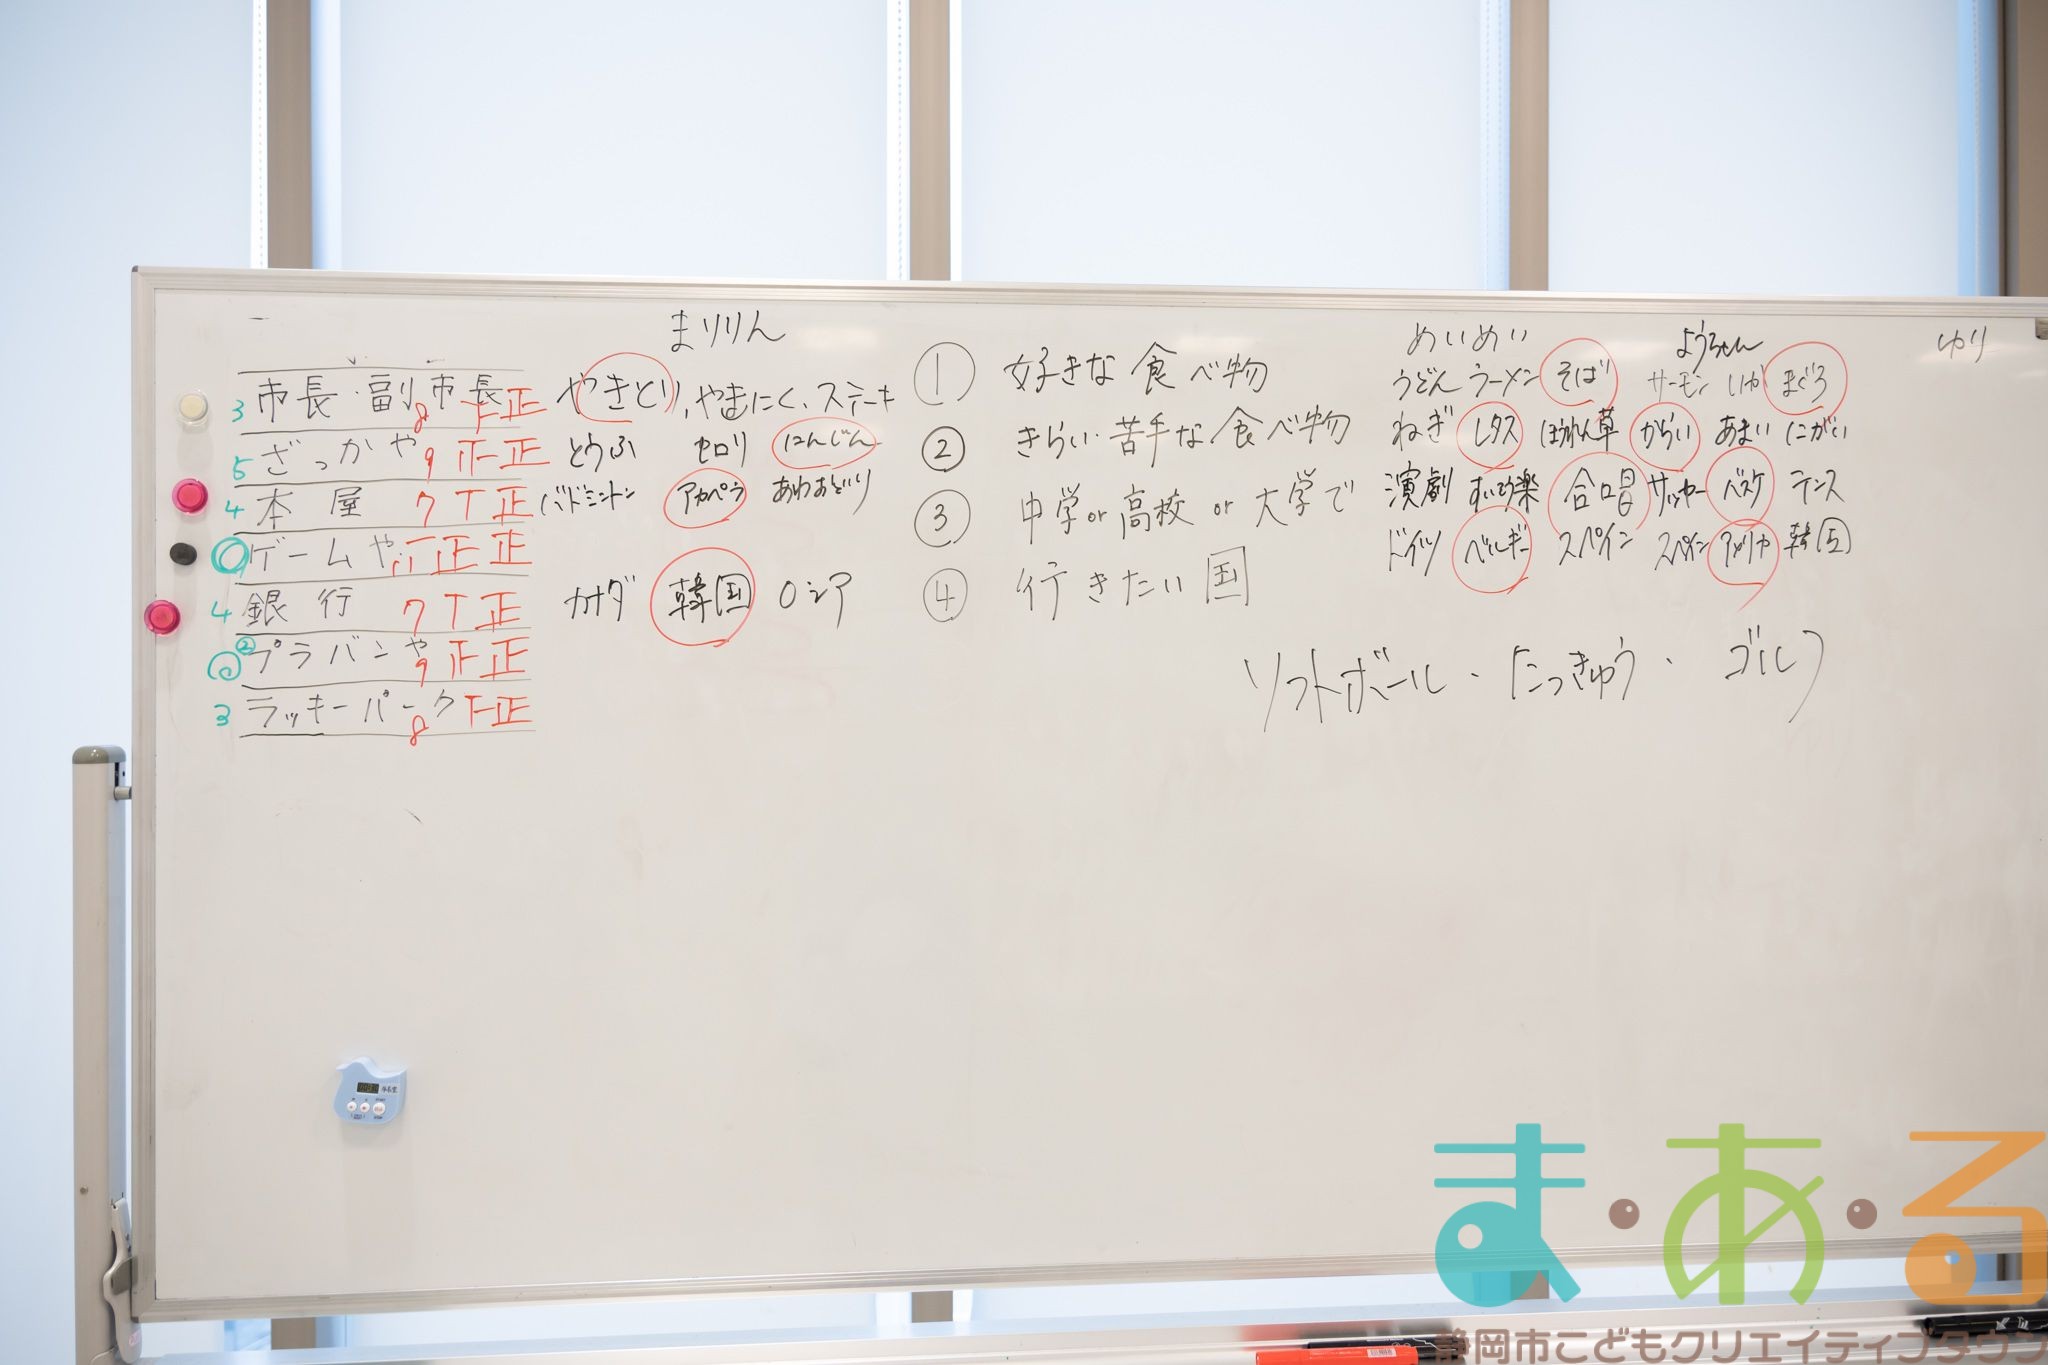 まりりん
めいめい
ようちゃん
ゆり
3 市長・副市長 8 下正
5 ざっかや 9 正正
4 本屋 7 T正
ゲームや 正正
4 銀行 7 T正
② プラバンや 9 正正
3 ラッキーパーク 8 下正
やきとり、やきにく、ステーキ
とうふ セロリ にんじん
バドミントン アカペラ あわおどり
カナダ 韓国 ロシア
① 好きな食べ物
② きらい・苦手な食べ物
③ 中学or高校or大学で
④ 行きたい国
うどん ラーメン そば
ねぎ レタス ほうれん草
演劇 すいそう楽 合唱
ドイツ ベルギー スペイン
サーモン いか まぐろ
からい あまい にがい
サッカー バスケ テニス
スペイン アメリカ 韓国
ソフトボール・たっきゅう・ゴルフ
ま・あ・る
静岡市こどもクリエイティブタウン